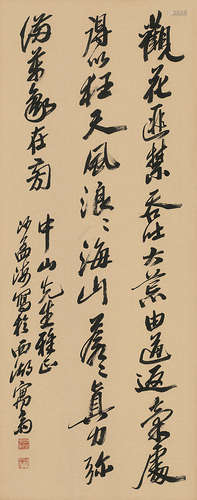 觀花匪禁吞吐大荒由道返氣處
得以狂天風浪〻海山蒼〻真力弥
滿萬象在旁
中山先生雅正
沙孟海寫於西湖寓